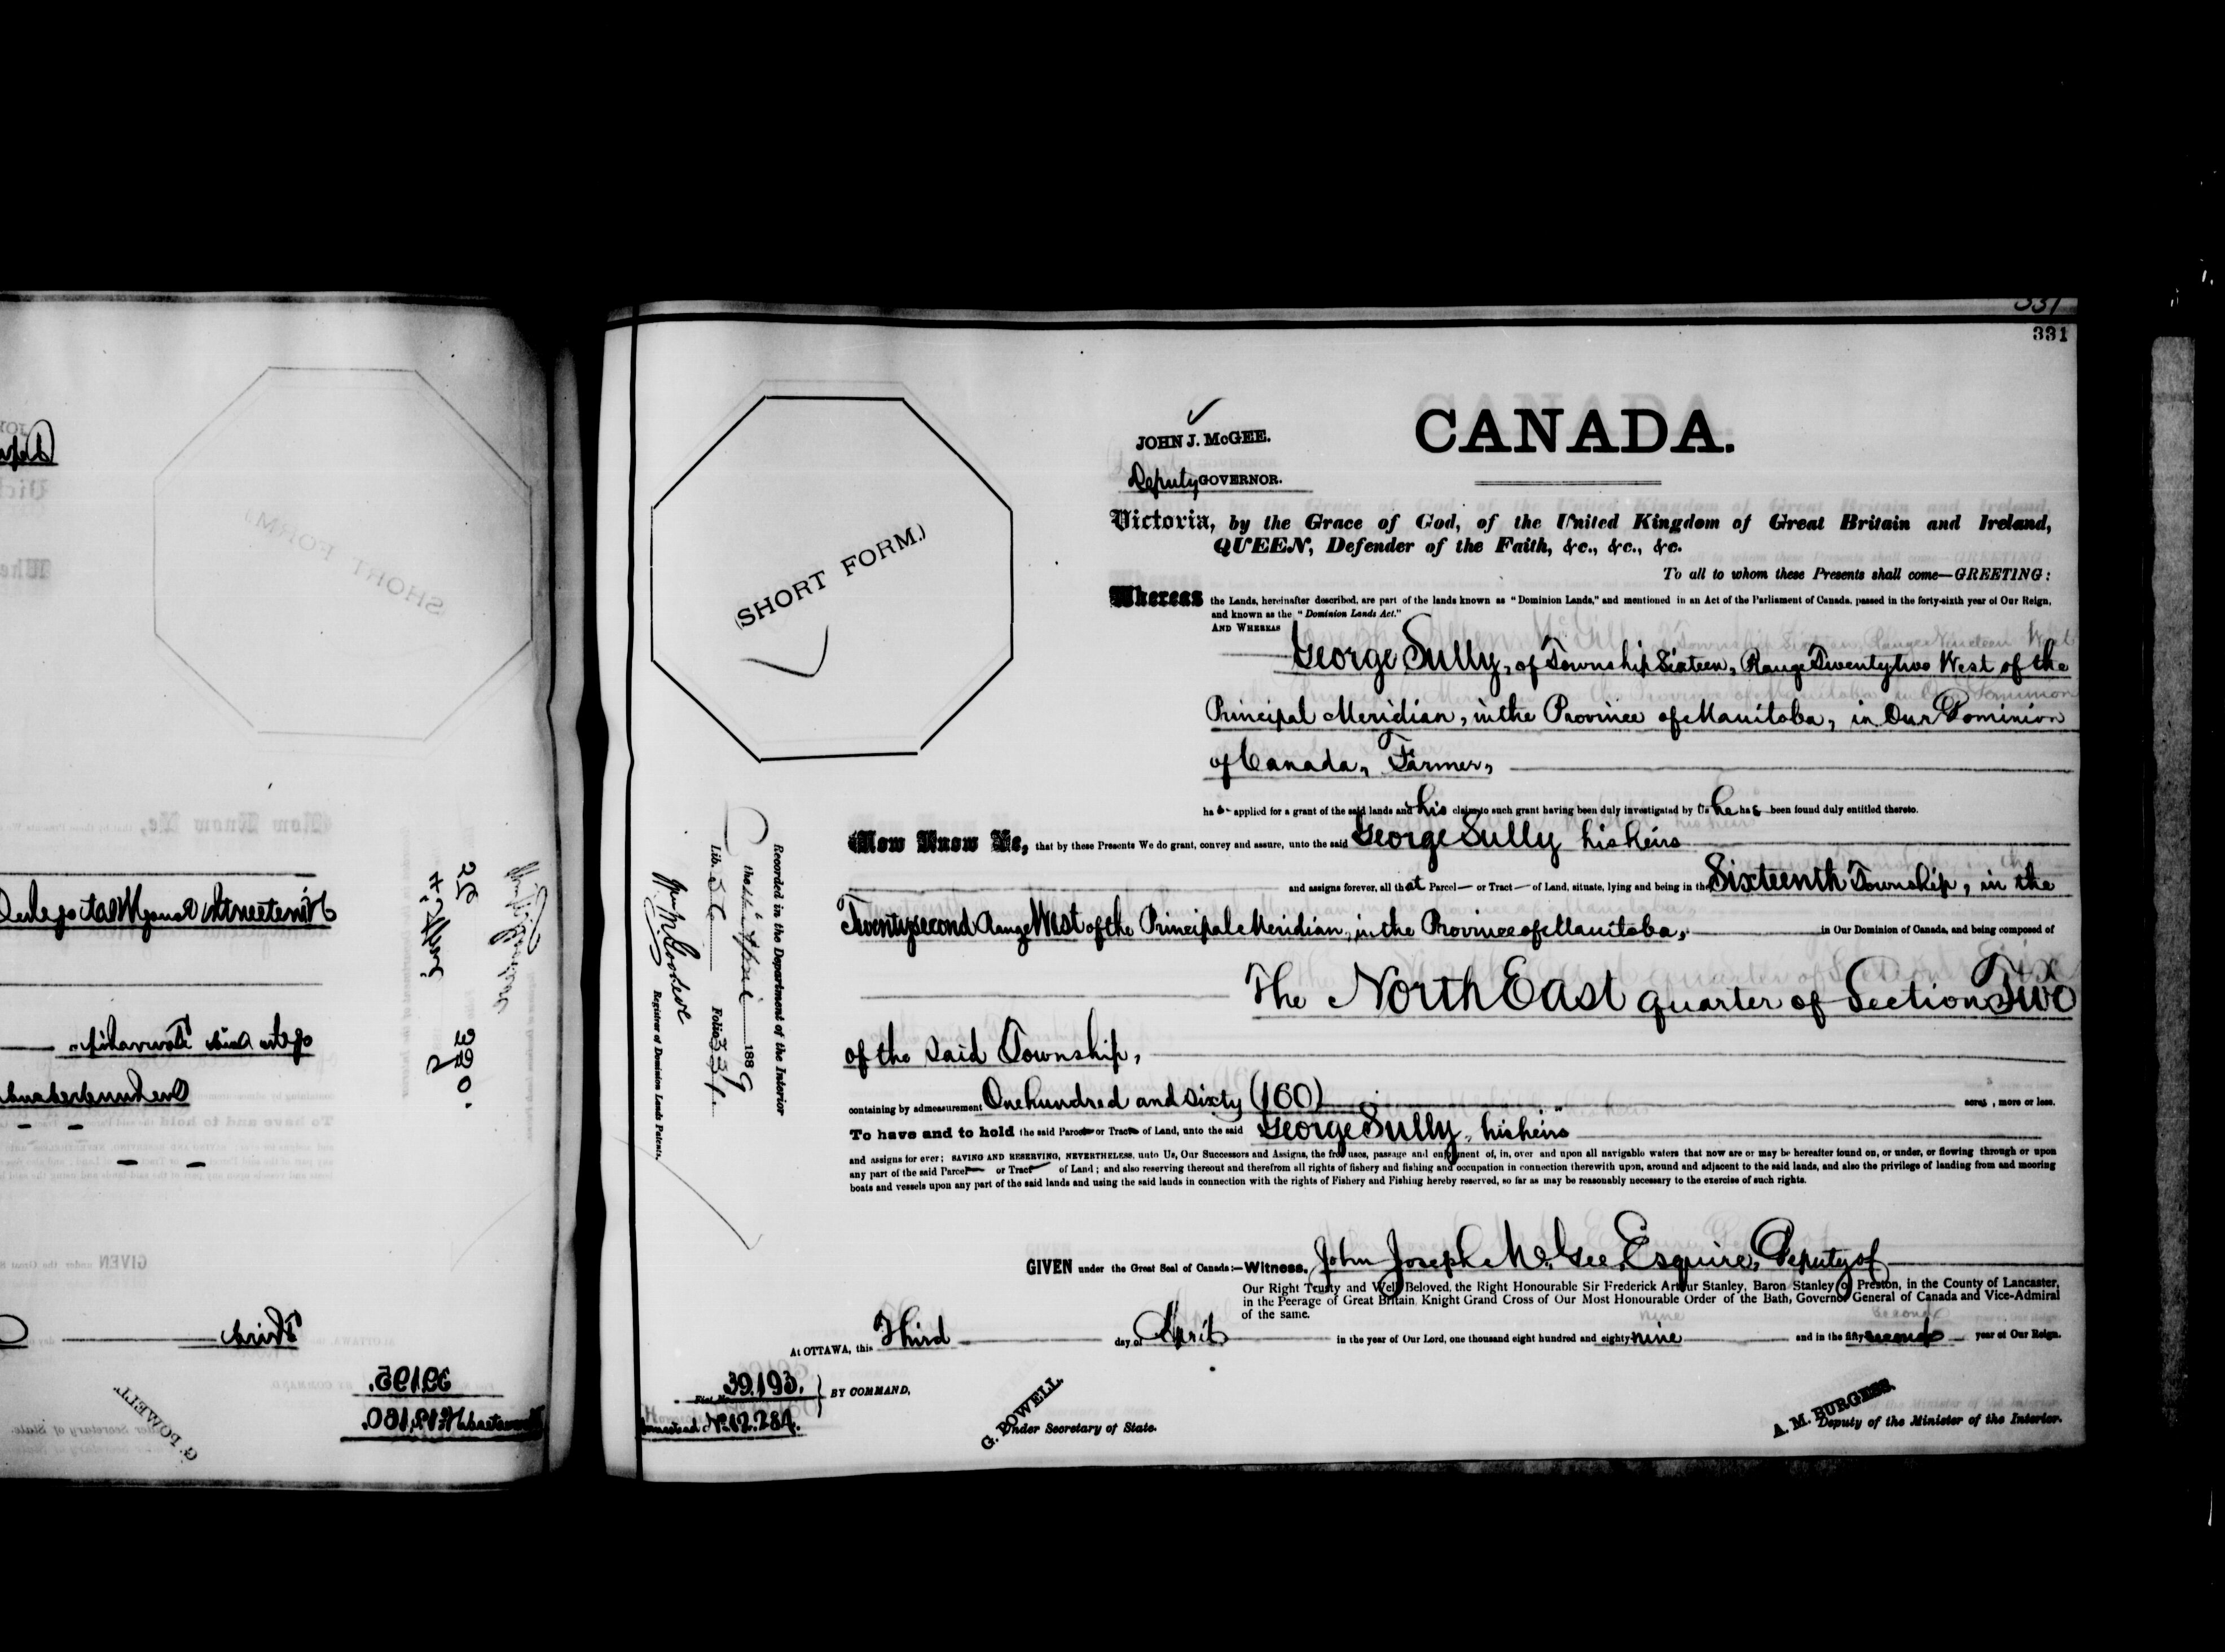 331
331
CANADA.
JOHN J. McGEE.
Deputy GOVERNOR.
(SHORT FORM.)
Victoria, by the Grace of God, of the United Kingdom of Great Britain and Ireland,
QUEEN, Defender of the Faith, &c., &c., &c.
To all to whom these Presents shall come—GREETING:
Whereas the Lands, hereinafter described, are part of the lands known as "Dominion Lands," and mentioned in an Act of the Parliament of Canada, passed in the forty-sixth year of Our Reign,
and known as the "Dominion Lands Act."
AND WHEREAS
George Sully, of Township Sixteen, Range Twenty two West of the
Principal Meridian, in the Province of Manitoba, in Our Dominion
of Canada, Farmer,
has applied for a grant of the said lands and his claim to such grant having been duly investigated by Us he has been found duly entitled thereto.
Now Know Ye, that by these Presents We do grant, convey and assure, unto the said George Sully his heirs
and assigns forever, all that Parcel — or Tract — of Land, situate, lying and being in the Sixteenth Township, in the
Twenty second Range West of the Principal Meridian, in the Province of Manitoba, in Our Dominion of Canada, and being composed of
The North East quarter of Section Two
of the said Township,
containing by admeasurement One hundred and sixty (160) acres, more or less.
To have and to hold the said Parcel or Tract of Land, unto the said George Sully, his heirs
and assigns for ever; SAVING AND RESERVING, NEVERTHELESS, unto Us, Our Successors and Assigns, the free uses, passage and enjoyment of, in, over and upon all navigable waters that now are or may be hereafter found on, or under, or flowing through or upon
any part of the said Parcel — or Tract — of Land; and also reserving thereout and therefrom all rights of fishery and fishing and occupation in connection therewith upon, around and adjacent to the said lands, and also the privilege of landing from and mooring
boats and vessels upon any part of the said lands and using the said lands in connection with the rights of Fishery and Fishing hereby reserved, so far as may be reasonably necessary to the exercise of such rights.
GIVEN under the Great Seal of Canada:—Witness, John Joseph McGee, Esquire, Deputy of
Our Right Trusty and Well Beloved, the Right Honourable Sir Frederick Arthur Stanley, Baron Stanley of Preston, in the County of Lancaster,
in the Peerage of Great Britain, Knight Grand Cross of Our Most Honourable Order of the Bath, Governor General of Canada and Vice-Admiral
of the same.
At OTTAWA, this Third day of April in the year of Our Lord, one thousand eight hundred and eighty nine and in the fifty second year of Our Reign.
39193. BY COMMAND,
Homestead No. 12.284.
G. POWELL,
Under Secretary of State.
A. M. BURGESS.
Deputy of the Minister of the Interior.
Recorded in the Department of the Interior
the April 1889
Lib. 56 Folio 331.
Registrar of Dominion Lands Patents.